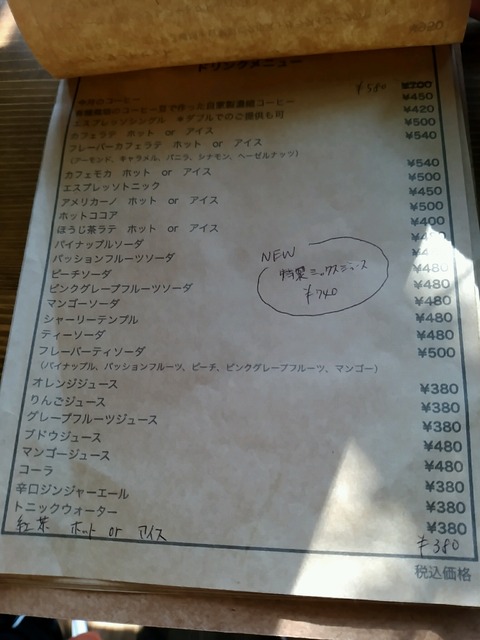 ドリンクメニュー
今月のコーヒー ¥580
自家製濃縮コーヒー ¥450
エスプレッソシングル ※ダブルでのご提供も可 ¥420
カフェラテ ホット or アイス ¥500
フレーバーカフェラテ ホット or アイス ¥540
(アーモンド、キャラメル、バニラ、シナモン、ヘーゼルナッツ)
カフェモカ ホット or アイス ¥540
エスプレッソトニック ¥500
アメリカーノ ホット or アイス ¥450
ホットココア ¥500
ほうじ茶ラテ ホット or アイス ¥400
パイナップルソーダ
パッションフルーツソーダ
ピーチソーダ ¥480
ピンクグレープフルーツソーダ ¥480
マンゴーソーダ ¥480
シャーリーテンプル ¥480
ティーソーダ ¥480
フレーバーティソーダ ¥500
(パイナップル、パッションフルーツ、ピーチ、ピンクグレープフルーツ、マンゴー)
NEW
特製ミックスジュース
¥740
オレンジジュース ¥380
りんごジュース ¥380
グレープフルーツジュース ¥380
ブドウジュース ¥480
マンゴージュース ¥480
コーラ ¥380
辛口ジンジャーエール ¥380
トニックウォーター ¥380
紅茶 ホット or アイス ¥380
税込価格